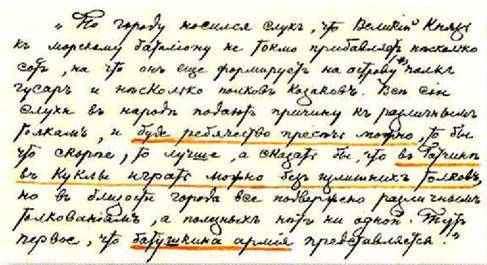 „По городу носился слухъ, что Великій Князь
къ морскому баталіону не токмо прибавляетъ нѣсколько
сотъ, на что онъ еще формируетъ на острову*) полкъ
гусаръ и нѣсколько полковъ козаковъ. Всѣ сіи
слухи въ народѣ подаютъ причину къ различнымъ
толкамъ, и буде ребячество пресѣчь можно, то бы
что скорѣе, то лучше, а сказать бы, что въ Гатчинѣ
въ куклы играть можно безъ излишнихъ толковъ,
но въ близости города все подвержено различнымъ
толкованіямъ, а полезныхъ нѣтъ ни одной. Тутъ
первое, что батюшкина армія представляется."